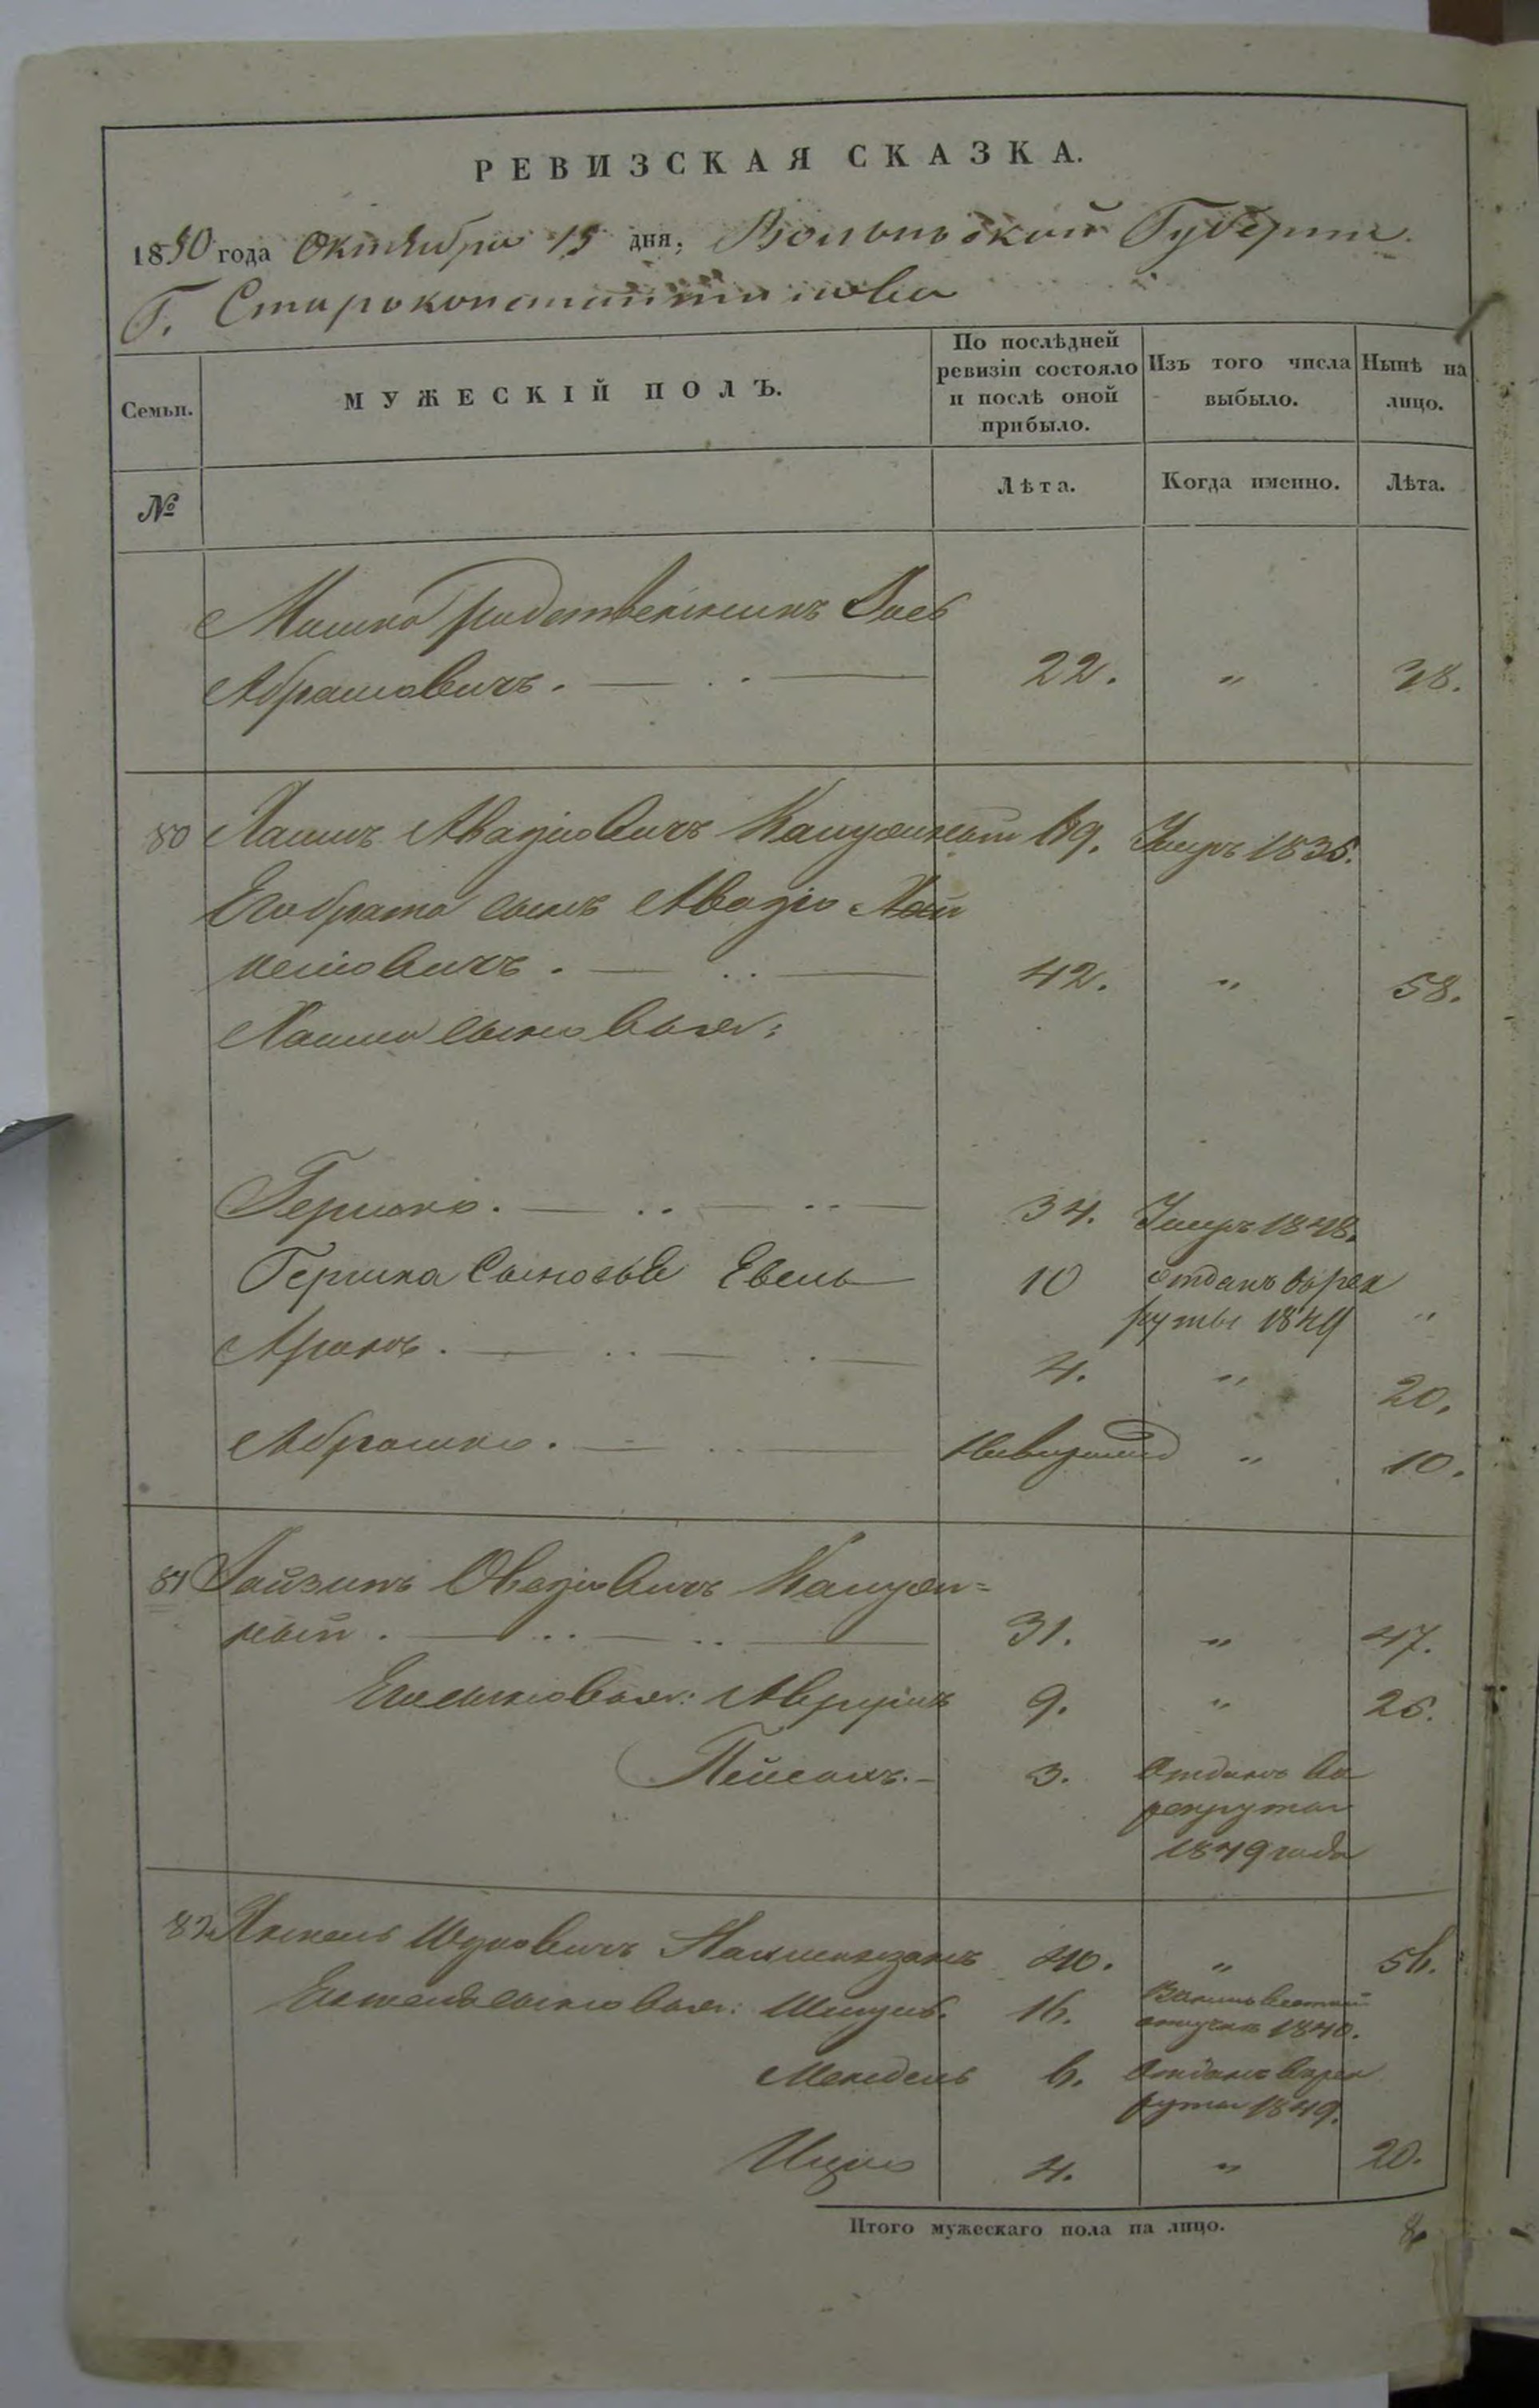 РЕВИЗСКАЯ СКАЗКА.
1850 года Октября 15 дня, Волынской Губернии
Г. Староконстантинова
Семьи. МУЖЕСКІЙ ПОЛЪ. По послѣдней ревизіи состояло и послѣ оной прибыло. Изъ того числа выбыло. Нынѣ на лицо.
№ Лѣта. Когда именно. Лѣта.
Мошка родственникъ
Абрамовичъ. 22. „ 38.
80 Авадіовичъ 69. Умеръ 1835.
Его брата сынъ Авадіо
42. „ 58.
сыновья:
Гершко. 34. Умеръ 1848.
Гершка Сыновья Евель 10 отданъ въ рек
руты 1849 „
Аронъ. 4. „ 20.
Абрамко. „ 10.
81 Лайзинъ Овадіовичъ
ный. 31. „ 47.
Его сыновья: 9. „ 25.
Пейсахъ. 3. Отданъ въ
рекруты
1849 года
82 40. „ 56.
сыновья: Шмуль. 16.
1840.
Мендель 6. Отданъ въ рек
руты 1849.
Ицко 4. „ 20.
Итого мужескаго пола на лицо. 8.